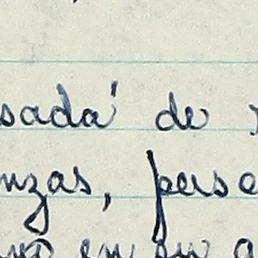 sada' de
nzas, pers
en su